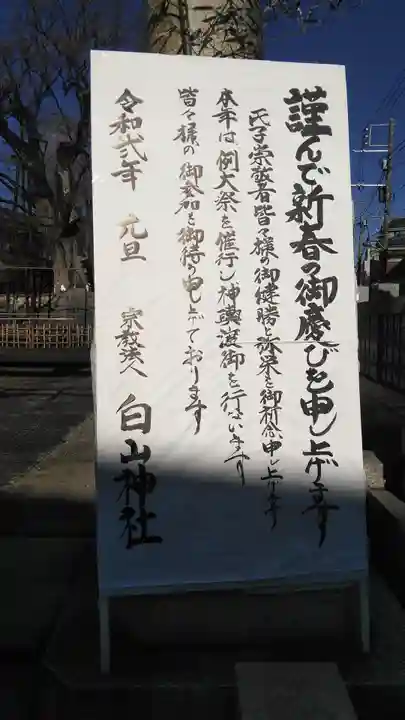 謹んで新春の御慶びを申し上げます
氏子崇敬者皆々様の御健勝と弥栄を御祈念申し上げます
本年は、例大祭を催行し神輿渡御を行ないます
皆々様の御参加を御待ち申し上げております
令和弐年 元旦 宗教法人 白山神社